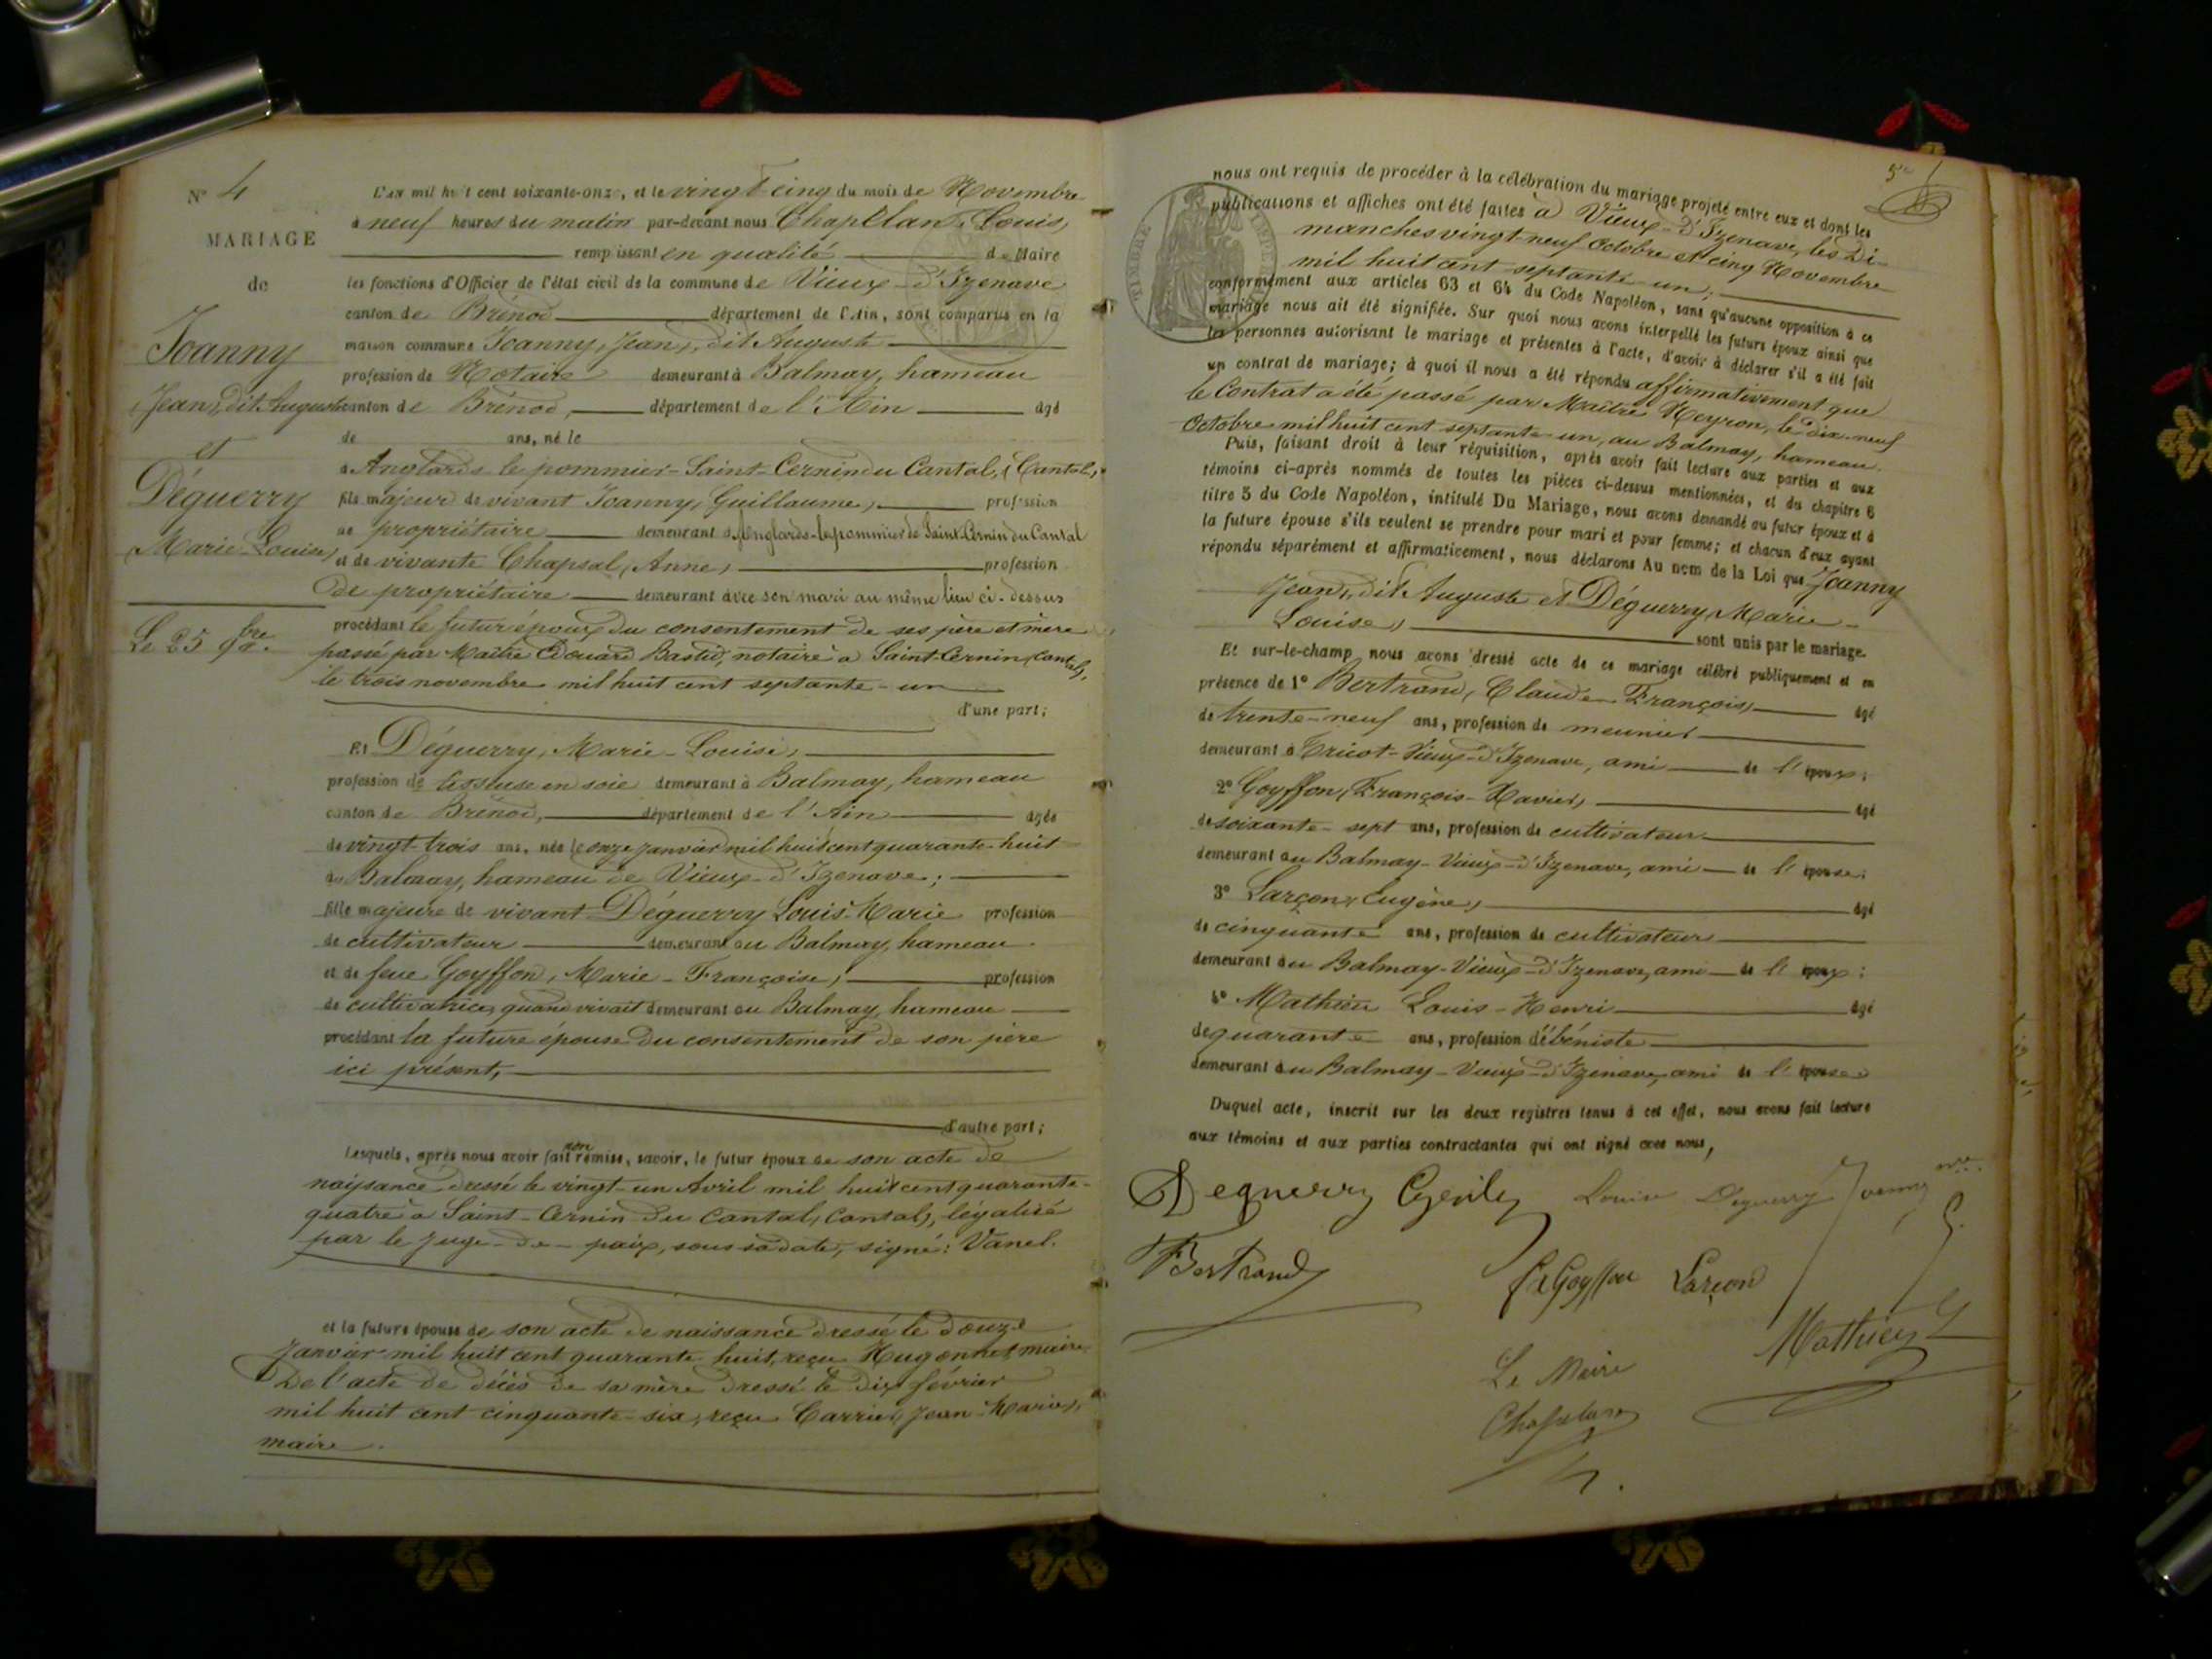 N° 4
MARIAGE
de
Joanny
(Jean), dit Auguste
et
Déguerry
(Marie-Louise)
Le 25 9bre.
L'AN mil huit cent soixante-onze, et le vingt cinq du mois de Novembre
à neuf heures du matin par-devant nous Chapelan, Louis,
remplissant en qualité de Maire
les fonctions d'Officier de l'état civil de la commune de Vieux-d'Izenave
canton de Brénod département de l'Ain, sont comparus en la
maison commune Joanny, Jean, dit Auguste
profession de Notaire demeurant à Balmay, hameau
canton de Brénod, département de l'Ain âgé
de ans, né le
à Anglards le pommier-Saint-Cernin du Cantal, (Cantal),
fils majeur de vivant Joanny, Guillaume, profession
de propriétaire demeurant à Anglards-le pommier de Saint-Cernin du Cantal
et de vivante Chapsal, Anne, profession
de propriétaire demeurant avec son mari au même lieu ci-dessus
procédant le futur époux du consentement de ses père et mère
passé par Maître Edouard Bastid, notaire à Saint-Cernin, Cantal),
le trois novembre mil huit cent septante-un
d'une part;
Et Déguerry, Marie-Louise,
profession de tisseuse en soie demeurant à Balmay, hameau
canton de Brénod, département de l'Ain âgée
de vingt-trois ans, née le onze janvier mil huit cent quarante-huit
au Balmay, hameau de Vieux-d'Izenave;
fille majeure de vivant Déguerry Louis-Marie profession
de cultivateur demeurant au Balmay, hameau
et de feue Goyffon, Marie-Françoise, profession
de cultivatrice, quand vivait demeurant au Balmay, hameau
procédant la future épouse du consentement de son père
ici présent,
d'autre part;
non
Lesquels, après nous avoir fait remise, savoir, le futur époux de son acte de
naissance dressé le vingt-un Avril mil huit cent quarante-
quatre à Saint-Cernin du Cantal, Cantal), légalisé
par le juge-de-paix, sous sa date, signé: Vanel.
et la future épouse de son acte de naissance dressé le douze
Janvier mil huit cent quarante huit, reçu Hugonnet, maire
De l'acte de décès de sa mère dressé le dix février
mil huit cent cinquante-six, reçu Carrier, Jean-Marie,
maire.
5e
TIMBRE
nous ont requis de procéder à la célébration du mariage projeté entre eux et dont les
publications et affiches ont été faites à Vieux-d'Izenave, les Di-
manches vingt-neuf Octobre et cinq Novembre
mil huit cent septante-un;
conformément aux articles 63 et 64 du Code Napoléon, sans qu'aucune opposition à ce
mariage nous ait été signifiée. Sur quoi nous avons interpellé les futurs époux ainsi que
les personnes autorisant le mariage et présentes à l'acte, d'avoir à déclarer s'il a été fait
un contrat de mariage; à quoi il nous a été répondu affirmativement que
le Contrat a été passé par Maître Neyron, le dix-neuf
Octobre mil huit cent septante-un, au Balmay, hameau.
Puis, faisant droit à leur réquisition, après avoir fait lecture aux parties et aux
témoins ci-après nommés de toutes les pièces ci-dessus mentionnées, et du chapitre 6
titre 5 du Code Napoléon, intitulé Du Mariage, nous avons demandé au futur époux et à
la future épouse s'ils veulent se prendre pour mari et pour femme; et chacun d'eux ayant
répondu séparément et affirmativement, nous déclarons Au nom de la Loi que Joanny
Jean, dit Auguste et Déguerry, Marie-
Louise, sont unis par le mariage.
Et sur-le-champ nous avons dressé acte de ce mariage célébré publiquement et en
présence de 1° Bertrand, Claude-François, âgé
de trente-neuf ans, profession de meunier
demeurant à Tricot-Vieux-d'Izenave, ami de l'époux;
2° Goyffon, François-Xavier, âgé
de soixante-sept ans, profession de cultivateur
demeurant au Balmay-Vieux-d'Izenave, ami de l'épouse;
3° Larçon, Eugène, âgé
de cinquante ans, profession de cultivateur
demeurant au Balmay-Vieux-d'Izenave, ami de l'époux;
4° Mathieu Louis-Henri âgé
de quarante ans, profession d'ébéniste
demeurant au Balmay-Vieux-d'Izenave, ami de l'épouse
Duquel acte, inscrit sur les deux registres tenus à cet effet, nous avons fait lecture
aux témoins et aux parties contractantes qui ont signé avec nous,
Deguerry Louise Deguerry Joanny nre.
Bertrand fx Goyffon Larçon
Mathieu
Le Maire
Chapelan